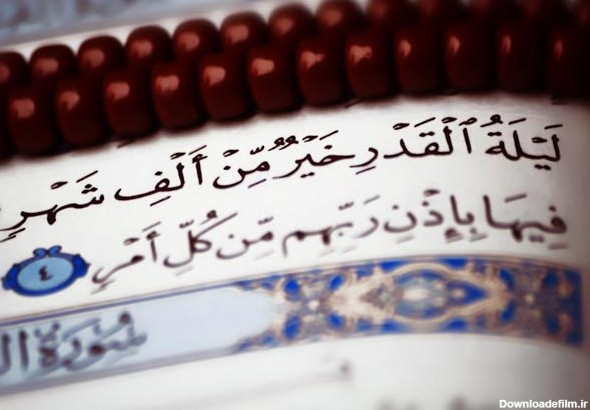 لَيۡلَةُ ٱلۡقَدۡرِ خَيۡرٞ مِّنۡ أَلۡفِ شَهۡرٖ
فِيهَا بِإِذۡنِ رَبِّهِم مِّن كُلِّ أَمۡرٖ ٤
سُورَةُ
Downloadefilm.ir